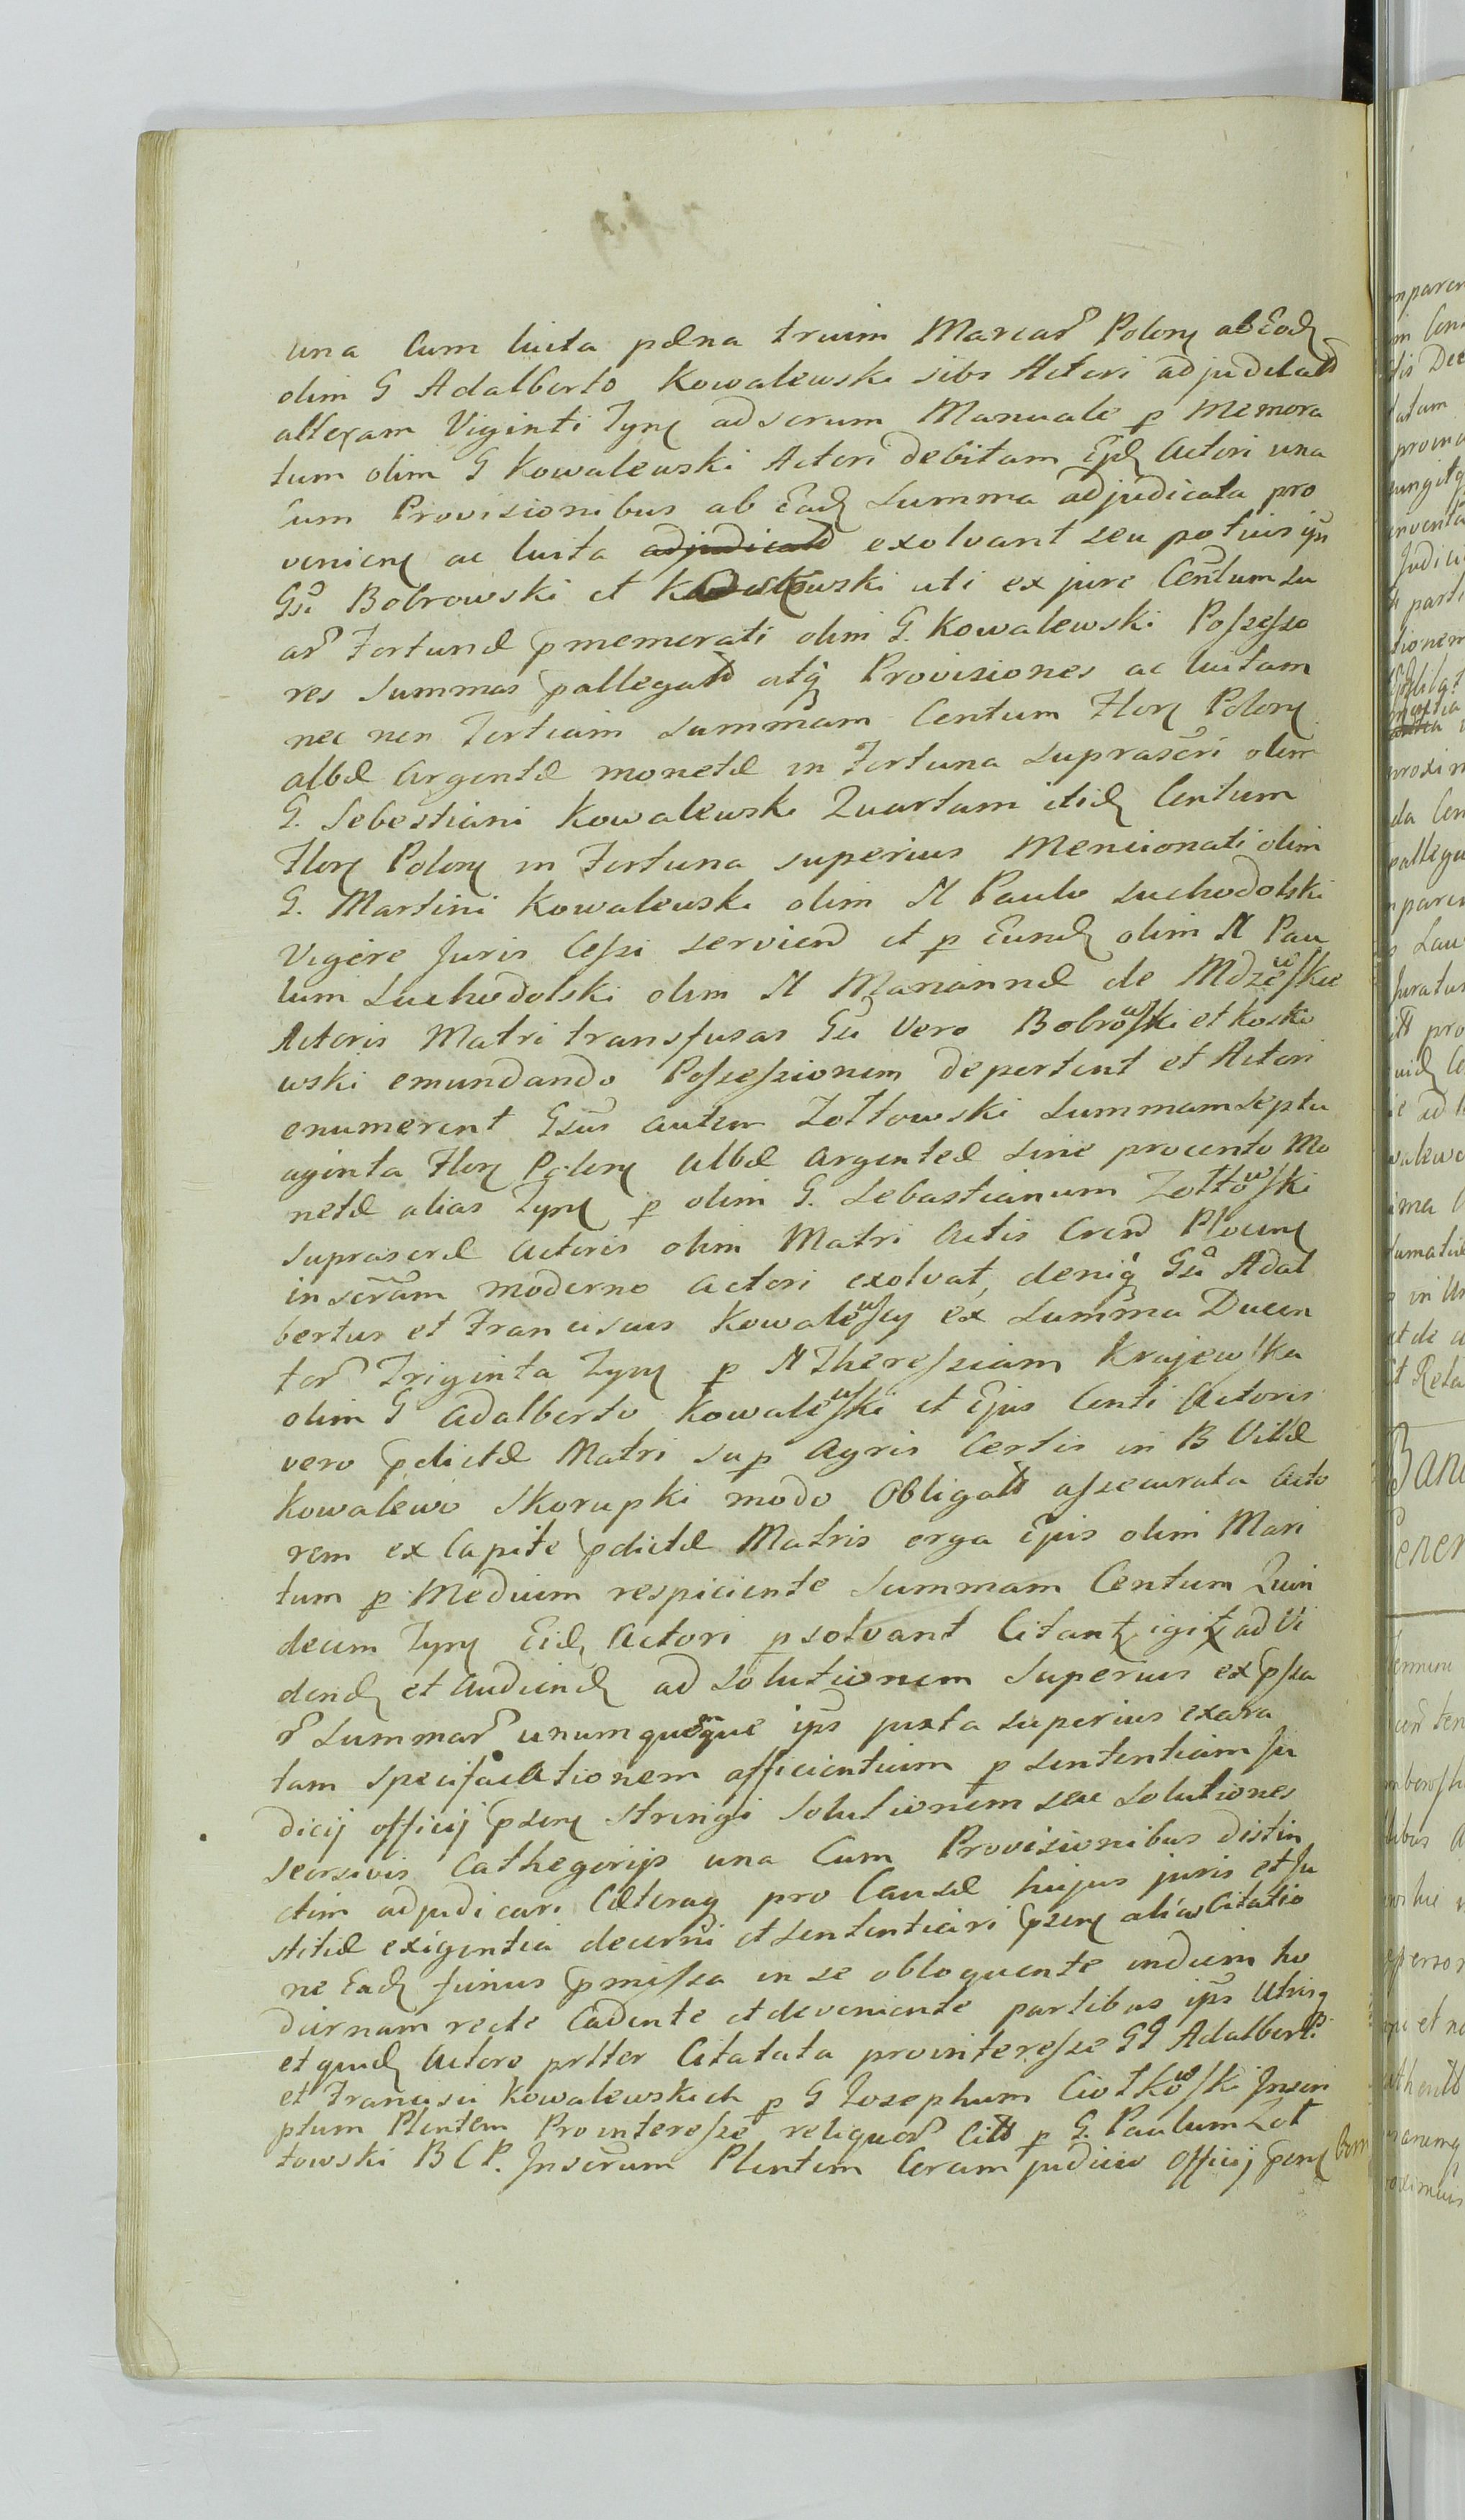 una Cum luita pæna trium Marcar Polon ab Ead
olim G Adalberto Kowalewski sibi Actori adjudicata
alteram Viginti Tynf ad scrum Manuale p Memora
tum olim G Kowalewski Actori debitam Ejd Actori una
cum Provisionibus ab Ead Summa adjudicata pro
venien ac luita exolvant seu potius ipsi
Gsi Bobrowski et uti ex jure Centum su
ar Fortunæ pmemorati olim G. Kowalewski Possesso
res Summas pallegatas atq Provisiones ac luitam
nec non Tertiam summam Centum Flor Polon
albæ Argentæ monetæ in Fortuna suprascri olim
G. Sebestiani Kowalewski Quartam itid Centum
Flor Polon in Fortuna superius Mencionati olim
G. Martini Kowalewski olim M Paulo Suchodolski
Vigore Juris Cessi serviend et p Eund olim M Pau
lum Suchodolski olim M Mariannæ de Mdzewskie
Actoris Matri transfusas Gsi Vero Bobrowski et Kosko
wski emundando Possessionem deportent et Actori
enumerent Gsus autem Zołtowski Summam septu
aginta Flor Polon Albæ Argenteæ sine procento Mo
netæ alias Tynf p olim G. Sebastianum Zołtowski
suprascræ Actoris olim Matri Actis Cren Plocen
inscram moderno Actori exolvat, deniq Gsi Adal
bertus et Franciscus Kowalewscy ex Summa Ducen
tor Triginta Tynf p M Theressiam Krajewska
olim G Adalberto Kowalewski et Ejus Conti Actoris
vero pdictæ Matri sup Agris Certis in B Villæ
Kowalewo Skorupki modo Obligatt assecurata Acto
rem ex Capite pdictæ Matris erga Ejus olim Mari
tum p Medium respiciente Summam Centum Quin
decim Tynf Eid Actori psolvant Citant igit ad Vi
dend et Audiend ad Solutionem Superius expssa
r Summar unumquemque ips juxta superius exara
tam specificationem afficientium p sententiam Ju
dicij officij psen stringi Solutionem seu Solutiones
seorsivis Cathegorijs una Cum Provisionibus distin
ctim adjudicari Cæteraq pro Causæ hujus juris et Ju
stitiæ exigentia decerni et sententiari psen alias Citatio
ne Ead funus pmissa in se obloquente indium ho
diernam recte Cadente et deveniente partibus ips Utrisq
et quid Actore prtter Citatata pro interesse GG Adalberti
et Francisci Kowalewskich p G Josephum Ciotkowski Inscri
ptum Plentem Pro interesse reliquor Citt p G. Paulum Zoł
towski B C P. Inscrum Plentem Coram judicio Officij psen Com